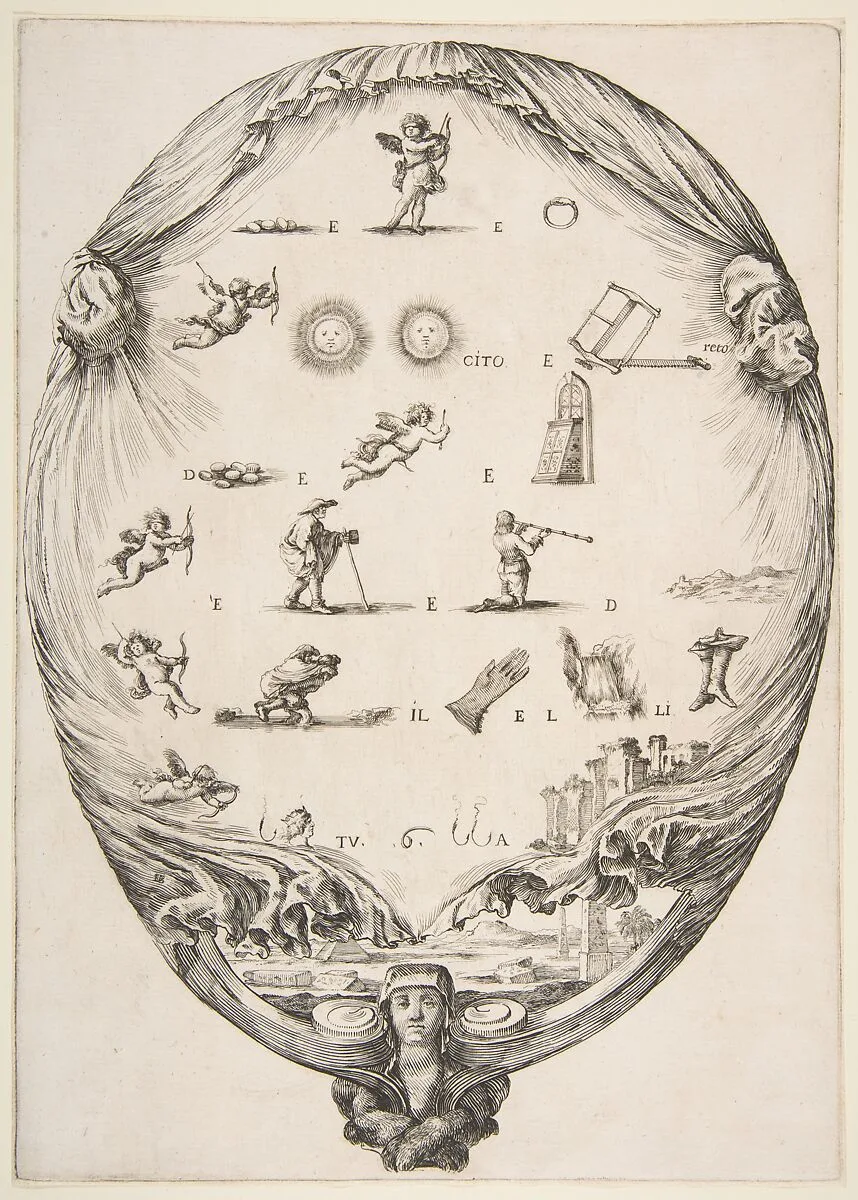 E E
CITO E reto
D E E
'E E D
IL E L LI
TV. .6. A